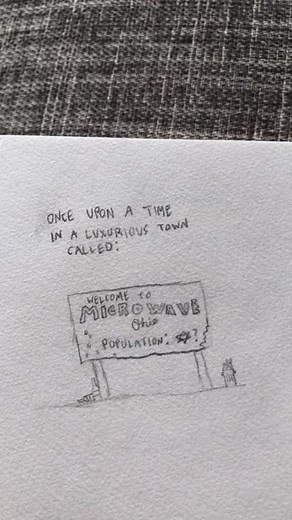 ONCE UPON A TIME
IN A LUXURIOUS TOWN
CALLED:
WELCOME to
MICROWAVE
Ohio
POPULATION: ?